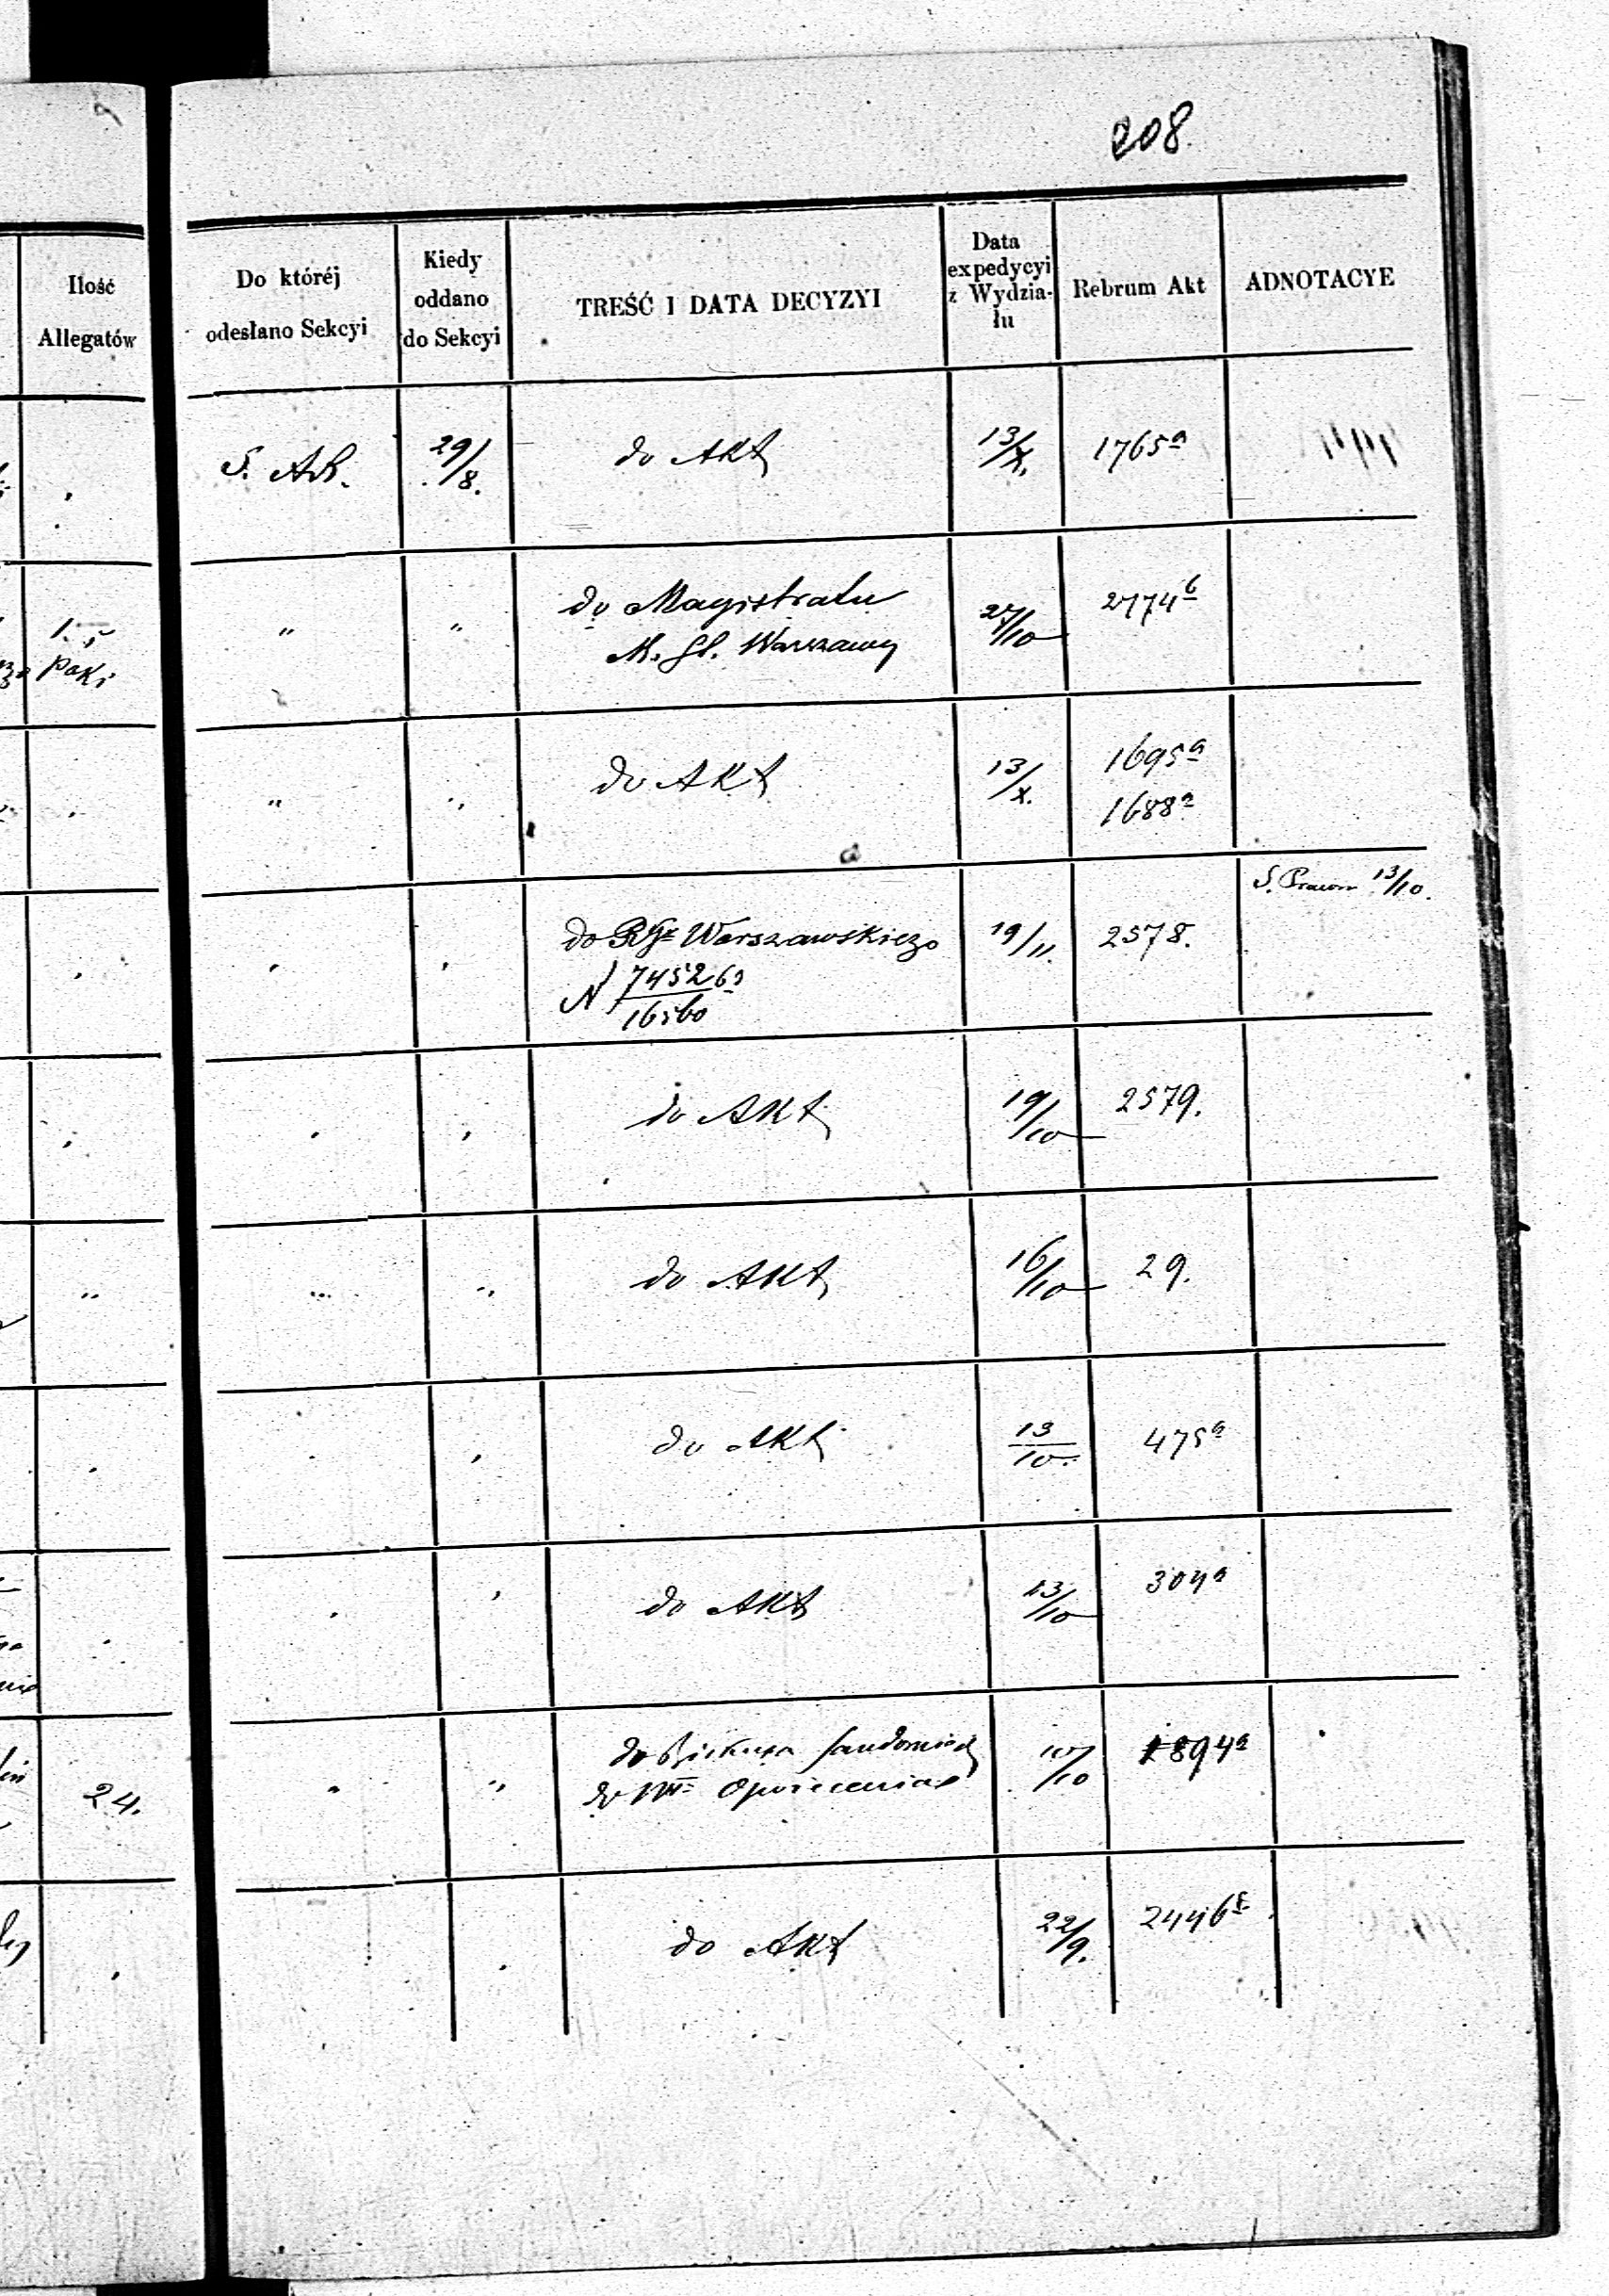 208.
Ilość
Allegatów
Do któréj
odesłano Sekcyi
Kiedy
oddano
do Sekcyi
TREŚĆ I DATA DECYZYI
Data
expedycyi
z Wydzia-
łu
Rebrum Akt
ADNOTACYE
29/8.
do Akt
13/X.
1765a
5
paki
"
"
do Magistratu
M. Gł. Warszawy
27/10
2774b
"
"
do Akt
13/X.
1695a
1688a
do RGr Warszawskiego
N 7452
16560
19/11.
2578.
S. 13/10.
do Akt
19/10
2579.
do Akt
16/10
29.
do Akt
13/10.
475a
do Akt
13/10
304a
24.
do Sandomier
do
10/10
1894a
do Akt
22/9.
2446